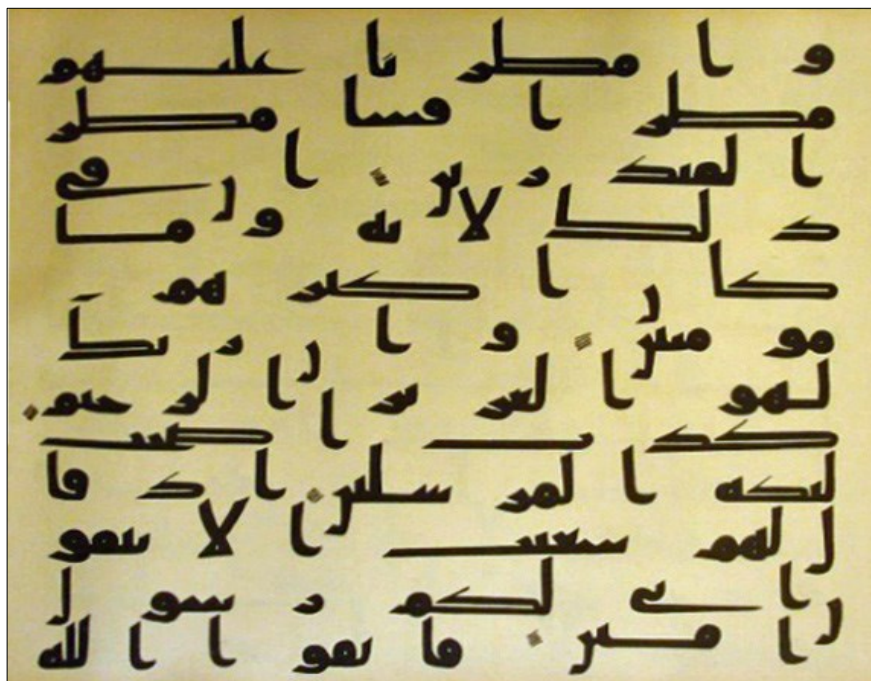 وامطرنا عليهم
مطرا فسا مطر
المنذرين ان في
ذلك لايه وما
كان اكثرهم
مومنين وان ربك
لهو العزيز الرحيم
كذب اصحب
ليكه المرسلين اذ قا
ل لهم شعيب الا تتقو
ن اني لكم رسول
امين فاتقوا الله